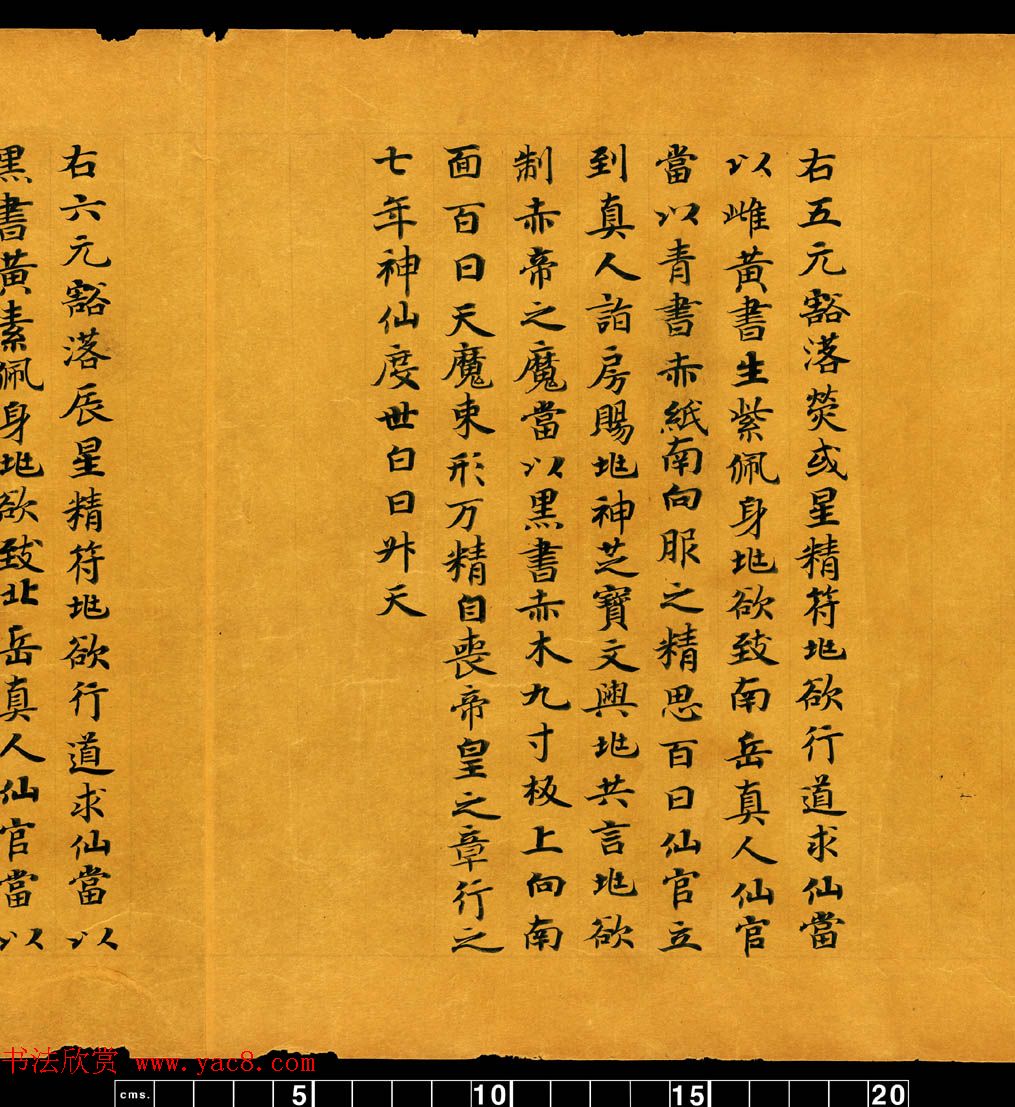 右五元豁落熒或星精符兆欲行道求仙當
以雌黄書生紫佩身兆欲致南岳真人仙官
當以青書赤紙南向服之精思百日仙官立
到真人詣房賜兆神芝寳文與兆共言兆欲
制赤帝之魔當以黒書赤木九寸板上向南
面百日天魔束形万精自喪帝皇之章行之
七年神仙度世白日昇天
右六元豁落辰星精符兆欲行道求仙當以
黒書黄素佩身兆欲致北岳真人仙官當以
书法欣赏 www.yac8.com
cms. 5 10 15 20